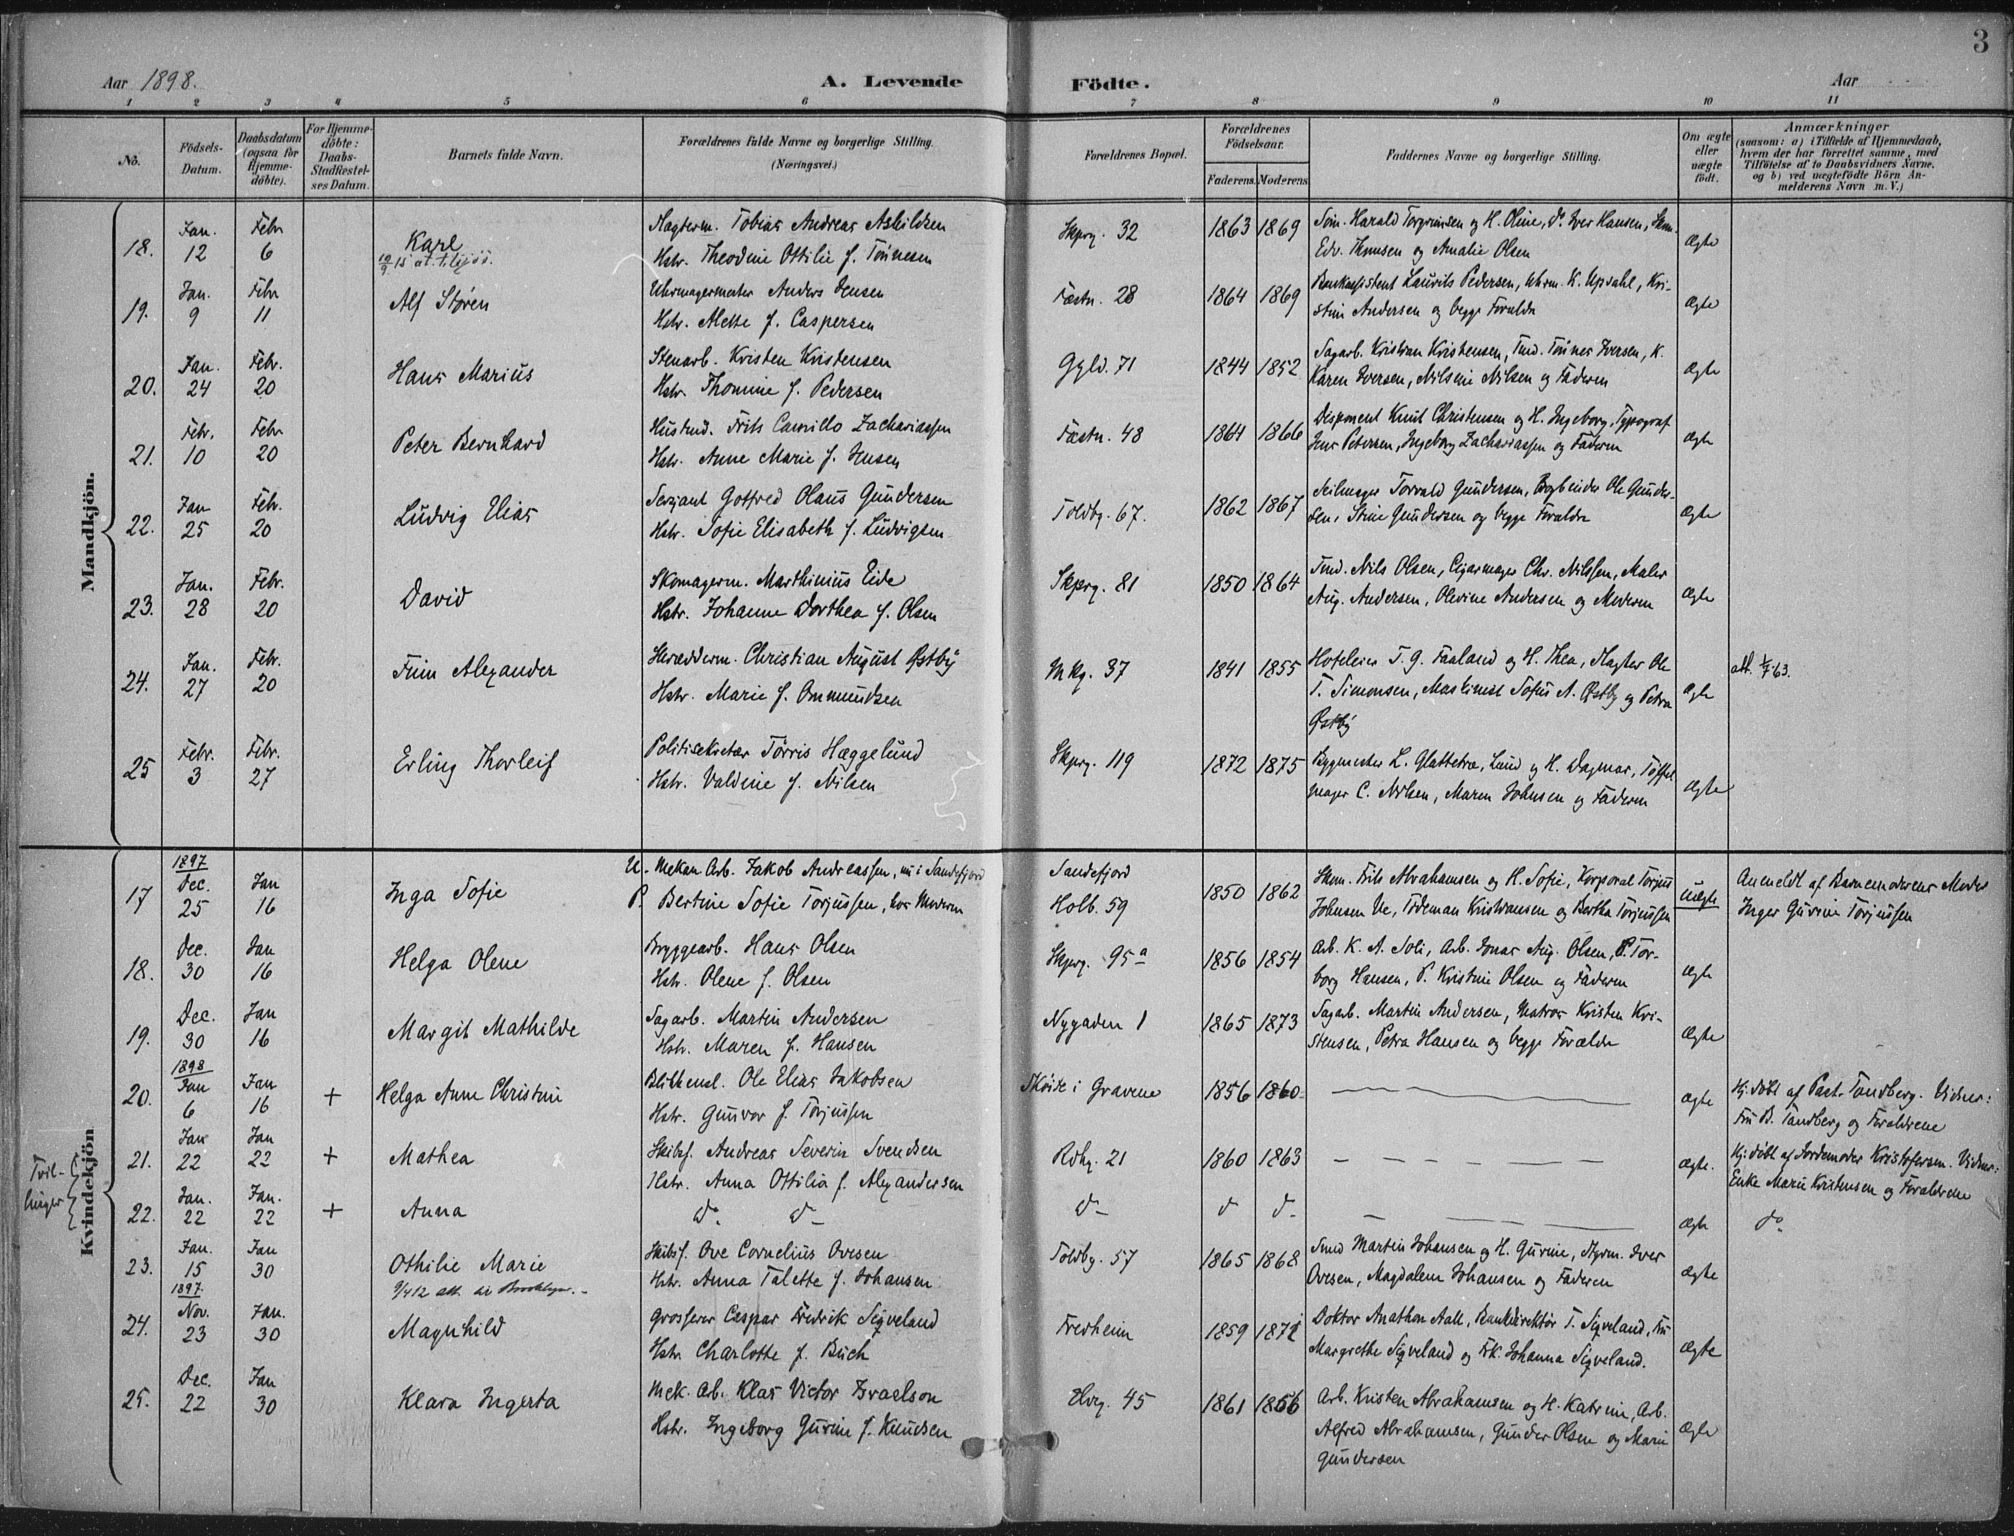 3
Aar 1898. A. Levende Födte. Aar
1 2 3 4 5 6 7 8 9 10 11
No.
Födsels-Datum.
Daabsdatum (ogsaa for Hjemme-döbte).
For Hjemme-döbte: Daabs-Stadfæstel-ses Datum.
Barnets fulde Navn.
Forældrenes fulde Navne og borgerlige Stilling. (Næringsvei.)
Forældrenes Bopæl.
Forældrenes Födselsaar.
Faderens. Moderens.
Faddernes Navne og borgerlige Stilling.
Om ægte eller uægte födt.
Anmærkninger
(saasom: a) (Tilfælde af Hjemmedaab,
hvem der har forrettet samme, med
Tilföielse af to Daabsvidners Navne,
og b) ved uægtefödte Börn An-
melderens Navn m. V.)
Mandkjön.
18. Jan. 12 Febr 6 Karl
Tobias Andreas Askildsen
Hstr. Theodine Ottilie f. Tönnesen
Skprg. 32 1863 1869
Harald Torgrimsen og H. Oline, do Iver Hansen,
Edv. Thomsen og Amalie Olsen
Ægte
19. Jan. 9 Febr 11 Alf Sören
Uhrmagermester Anders Jensen
Hstr. Alette f. Caspersen
Fæstn. 28 1864 1869
Bankassistent Laurits Pedersen, Uhrm. K. Upsahl, Kri-
stine Andersen og begge Forældre
Ægte
20. Jan. 24 Febr. 20 Hans Marius
Stenarb. Kristen Kristensen
Hstr. Thomine f. Pedersen
Ggld. 71 1844 1852
Sagarb. Kristian Kristensen, Tmd. Tönnes Iversen, K.
Karen Iversen, Nilsine Nilsen og Faderen
Ægte
21. Febr. 10 Febr 20 Peter Bernhard
Hustmd. Frits Camillo Zachariassen
Hstr. Anne Marie f. Jensen
Fæstn. 48 1864 1866
Disponent Knut Christensen og H. Ingeborg, Typograf
Jens Petersen, Ingeborg Zachariassen og Faderen
ægte
22. Jan 25 Febr. 20 Ludvig Elias
Serjant Gotfred Olaus Gundersen
Hstr. Sofie Elisabeth f. Ludvigsen
Toldbg. 67. 1862 1867
Seilmager Torvald Gundersen, Bogbinder Ole Gunder-
sen, Stine Gundersen og begge Forældre
Ægte
23. Jan. 28 Febr. 20 David
Skomagerm. Marthinius Eide
Hstr. Johanne Dorthea f. Olsen
Skprg. 81 1850 1864
Tmd. Nils Olsen, Cigarmager Chr. Nilssen, Maler
Aug. Andersen, Olevine Andersen og Moderen
ægte
24. Jan. 27 Febr. 20 Finn Alexander
Skrædderm. Christian August Østby
Hstr. Marie f. Ommundsen
Mkg. 37 1841 1855
Hoteleier T. G. Faaland og H. Thea, Ole
T. Simonsen, Maskinist Sofus A. Østby og Petra
Østby
ægte
25 Febr. 3 Febr. 27 Erling Thorleif
Politisekretær Törris Hæggelund
Hstr. Valdine f. Nilsen
Skprg. 119 1872 1875
Bygmester L. Glattetre, Lund og H. Dagmar, Töffel-
mager C. Nilsen, Maren Johnsen og Faderen
Ægte
Kvindekjön
17 1897 Dec. 25 Jan 16 Inga Sofie
U. Mekan. Arb. Jakob Andreassen, nu i Sandefjord
P. Bertine Sofie Torjussen, hos Moderen
Sandefjord
Holb. 59 1850 1862
Skom. Frits Abrahamsen og H. Sofie, Korporal Torjus
Johnsen Ve, Tideman Kristiansen og Bertha Torjussen
uægte
Anmeldt af Barnemoderens Moder
Inger Gurine Torjussen
18. Dec. 30 Jan 16 Helga Olene
Bryggearb. Hans Olsen
Hstr. Olene f. Olsen
Skprg. 95a 1856 1854
Arb. K. A. Soli, Arb. Jonas Aug. Olsen, P. Tor-
borg Hansen, P. Kristine Olsen og Faderen
ægte
19. Dec. 30 Jan 16 Margit Mathilde
Sagarb. Martin Andersen
Hstr. Maren f. Hansen
Nygaden 1 1865 1873
Sagarb. Martin Andersen, Matros Kristen Kri-
stensen, Petra Hansen og begge Forældre
Ægte
20. 1898 Jan 6 Jan 16 + Helga Anne Christine
Ole Elias Jakobsen
Hstr. Gunvor f. Torjussen
i Gravene 1856 1860
ægte
Hj.döbt af Past. Tandberg. Vidner:
Fru B. Tandberg og Forældrene
Tvil-
linger
21. Jan 22 Jan 22 + Mathea
Skibsf. Andreas Severin Svendsen
Hstr. Anna Ottilia f. Alexandersen
Rdhg. 21 1860 1863
ægte.
Hj.döbt af Jordemoder Kristofersen. Vidner:
Enke Marie Kristensen og Forældrene
22. Jan. 22 Jan. 22 + Anna
do do
do do do
ægte
do
23. Jan. 15 Jan 30 Othilie Marie
Skibsf. Ove Cornelius Ovesen
Hstr. Anna Talette f. Johansen
Toldbg. 57 1865 1868
Smed Martin Johansen og H. Gurine, Styrm. Iver
Ovesen, Magdalene Johansen og Faderen
ægte
24. 1897 Nov. 23 Jan. 30 Magnhild
Grosserer Caspar Fredrik Sigveland
Hstr Charlotte f. Buch
Fredheim 1859 1872
Doktor Anathon Aall, Bankdirektör T. Sigveland, Fru
Margrethe Sigveland og Frk. Johanna Sigveland.
ægte
25. Dec. 22 Jan 30 Klara Ingerta
Mek. Arb. Klas Victor Israelson
Hstr. Ingeborg Gurine f. Knudsen
Elvg. 45 1861 1856
Arb. Kristen Abrahamsen og H. Katrine, Arb.
Alfred Abrahamsen, Gunder Olsen og Marie
Gundersen
ægte